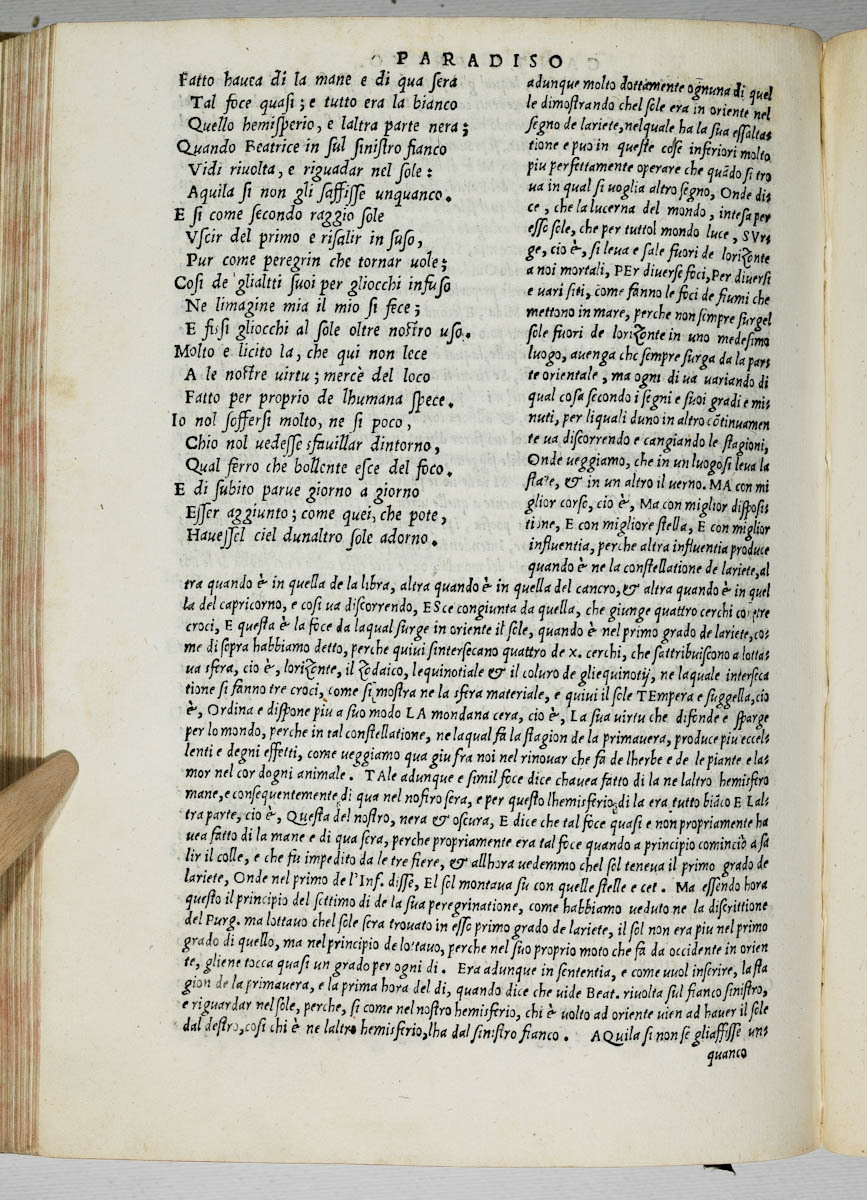 PARADISO
Fatto hauea di la mane e di qua sera
Tal foce quasi; e tutto era la bianco
Quello hemisperio, e laltra parte nera;
Quando Beatrice in sul sinistro fianco
Vidi riuolta, e riguadar nel sole:
Aquila si non gli saffisse unquanco.
E si come secondo raggio sole
Vscir del primo e risalir in suso,
Pur come peregrin che tornar uole;
Cosi de glialtti suoi per gliocchi infuso
Ne limagine mia il mio si fece;
E fissi gliocchi al sole oltre nostro uso.
Molto e licito la, che qui non lece
A le nostre uirtu; mercè del loco
Fatto per proprio de lhumana spece.
Io nol soffersi molto, ne si poco,
Chio nol uedesse sfauillar dintorno,
Qual ferro che bollente esce del foco.
E di subito parue giorno a giorno
Esser aggiunto; come quei, che pote,
Hauessel ciel dunaltro sole adorno.
adunque molto dottamente ognuna di quel
le dimostrando chel sole era in oriente nel
segno de lariete, nelquale ha la sua essaltas
tione e puo in queste cose inferiori molto
piu perfettamente operare che quãdo si tro
ua in qual si uoglia altro segno, Onde dis
ce, che la lucerna del mondo, intesa per
esso sole, che per tuttol mondo luce, SVrs
ge, cio è, si leua e sale fuori de lorizonte
a noi mortali, PEr diuerse foci, Per diuersi
e uari siti, come fanno le foci de fiumi che
mettono in mare, perche non sempre surgel
sole fuori de lorizonte in uno medesimo
luogo, auenga che sempre surga da la pars
te orientale, ma ogni di ua uariando di
qual cosa secondo i segni e suoi gradi e mis
nuti, per liquali duno in altro cõtinuamen
te ua discorrendo e cangiando le stagioni,
Onde ueggiamo, che in un luogo si leua la
state, & in un altro il uerno. MA con mi
glior corso, cio è, Ma con miglior disposis
tione, E con migliore stella, E con miglior
influentia, perche altra influentia produce
quando è ne la constellatione de lariete, al
tra quando è in quella de la libra, altra quando è in quella del cancro, & altra quando è in quel
la del capricorno, e cosi ua discorrendo, ESce congiunta da quella, che giunge quattro cerchi con tre
croci, E questa è la foce da laqual surge in oriente il sole, quando è nel primo grado de lariete, cos
me di sopra habbiamo detto, perche quiui sintersecano quattro de x. cerchi, che sattribuiscono a lottas
ua sfera, cio è, lorizonte, il zodaico, lequinotiale & il coluro de gliequinotij, ne laquale interseca
tione si fanno tre croci, come si mostra ne la sfera materiale, e quiui il sole TEmpera e suggella, cio
è, Ordina e dispone piu a suo modo LA mondana cera, cio è, La sua uirtu che difonde e sparge
per lo mondo, perche in tal constellatione, ne laqual fa la stagion de la primauera, produce piu eccels
lenti e degni effetti, come ueggiamo qua giu fra noi nel rinouar che fa de lherbe e de le piante e las
mor nel cor dogni animale. TAle adunque e simil foce dice chauea fatto di la ne laltro hemisfero
mane, e consequentemente di qua nel nostro sera, e per questo lhemisferio di la era tutto biãco E Lals
tra parte, cio è, Questa del nostro, nera & oscura, E dice che tal foce quasi e non propriamente ha
uea fatto di la mane e di qua sera, perche propriamente era tal foce quando a principio cominciò a sa
lir il colle, e che fu impedito da le tre fiere, & allhora uedemmo chel sol teneua il primo grado de
lariete, Onde nel primo de l'Inf. disse, El sol montaua su con quelle stelle e cet. Ma essendo hora
questo il principio del settimo di de la sua peregrinatione, come habbiamo ueduto ne la discrittione
del Purg. ma lottauo chel sole sera trouato in esso primo grado de lariete, il sol non era piu nel primo
grado di quello, ma nel principio de lottauo, perche nel suo proprio moto che fa da occidente in orien
te, gliene tocca quasi un grado per ogni di. Era adunque in sententia, e come uuol inferire, la sta
gion de la primauera, e la prima hora del di, quando dice che uide Beat. riuolta sul fianco sinistro,
e riguardar nel sole, perche, si come nel nostro hemisferio, chi è uolto ad oriente uien ad hauer il sole
dal destro, cosi chi è ne laltro hemisferio, lha dal sinistro fianco. AQuila si non se gliaffisse uns
quanco